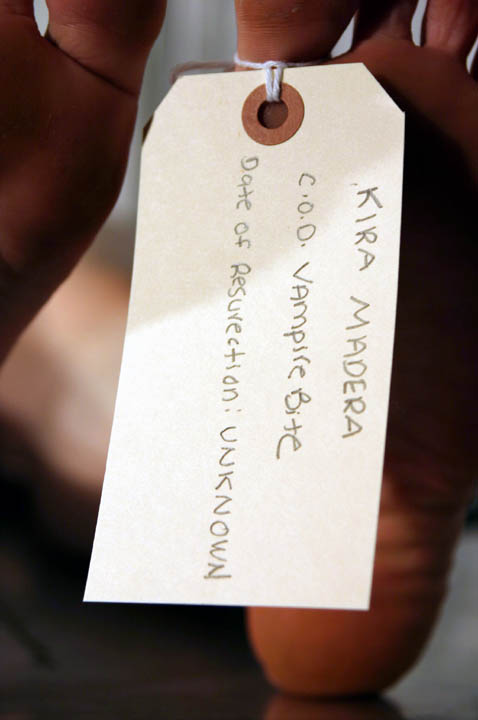 KIRA MADERA
C.O.D. VAMPIRE BitE
Date of Resurection: UNKNOWN